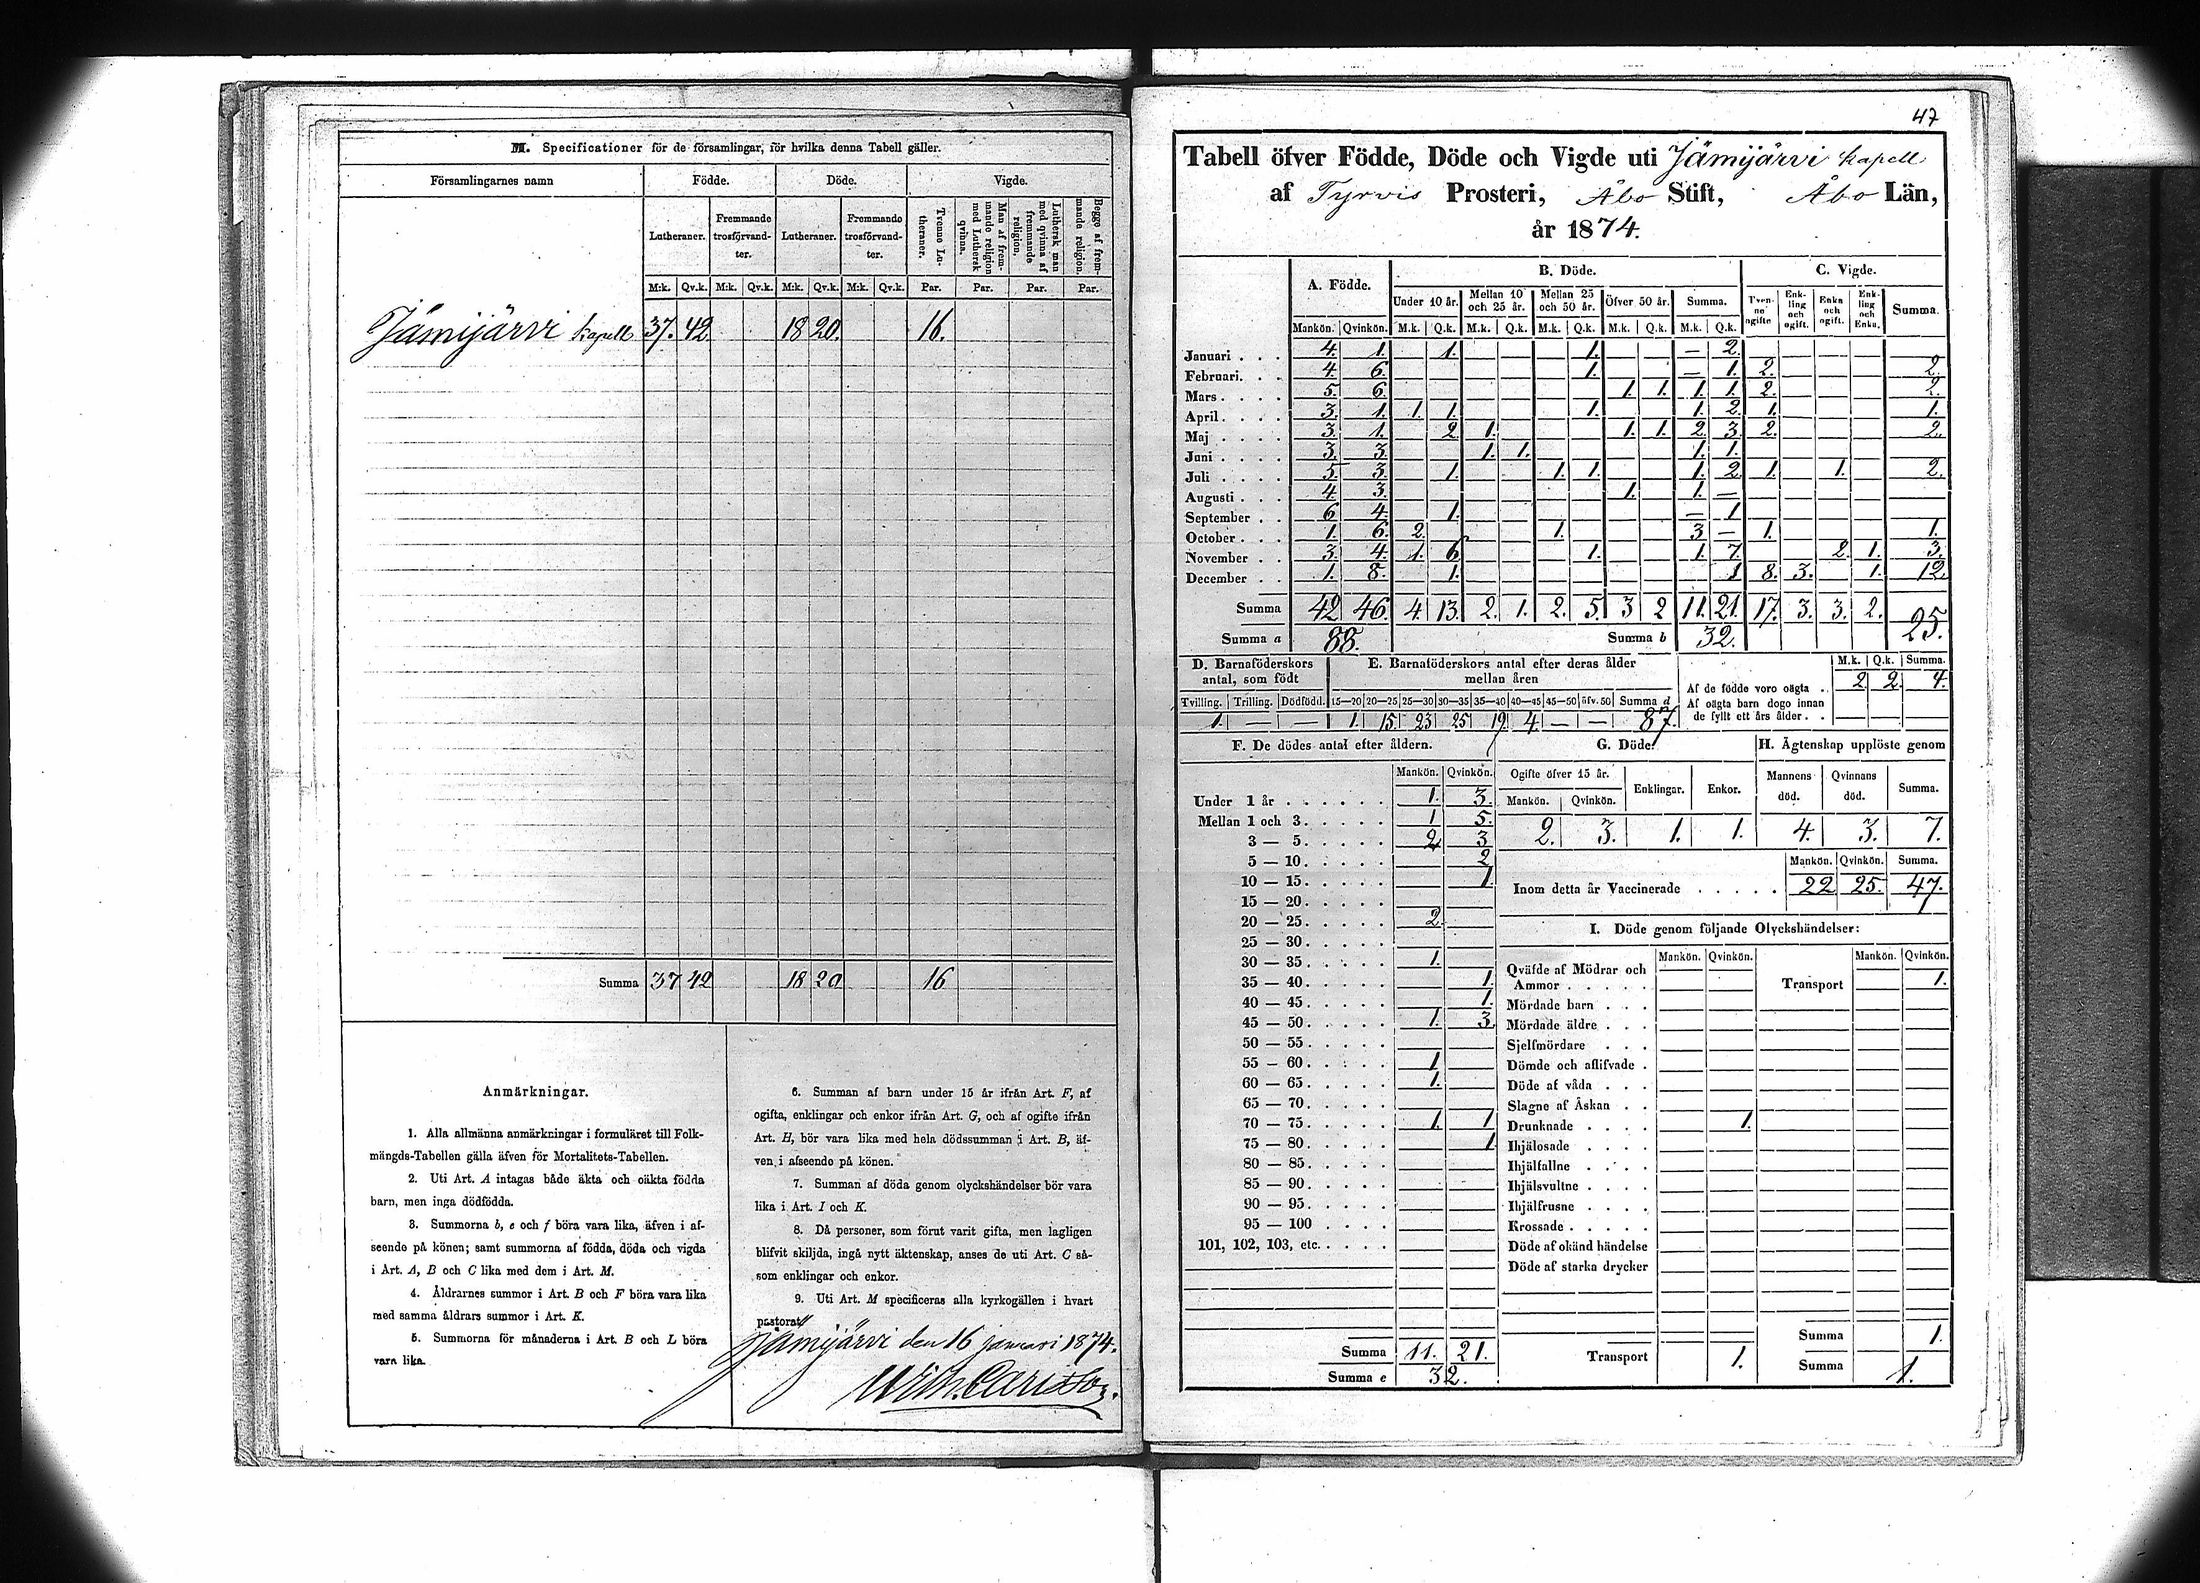 M. Specificationer för de församlingar, för hvilka denna Tabell gäller.
Församlingarnes namn Födde. Döde. Vigde.
Lutheraner. Fremmande trosförvandter. Lutheraner. Fremmande trosförvandter. Tvenne Lutheraner. Man af fremmande religion med Luthersk qvinna. Luthersk man med qvinna af fremmande religion. Begge af fremmande religion.
M:k. Qv.k. M:k. Qv.k. M:k. Qv.k. M:k. Qv.k. Par. Par. Par. Par.
Jämijärvi kapell 37. 42. 18 20. 16.
Summa 37 42 18 20 16
Anmärkningar.
1. Alla allmänna anmärkningar i formuläret till Folk-
mängds-Tabellen gälla äfven för Mortalitets-Tabellen.
2. Uti Art. A intagas både äkta och oäkta födda
barn, men inga dödfödda.
3. Summorna b, e och f böra vara lika, äfven i af-
seende på könen; samt summorna af födda, döda och vigda
i Art. A, B och C lika med dem i Art. M.
4. Åldrarnes summor i Art. B och F böra vara lika
med samma åldrars summor i Art. K.
5. Summorna för månaderna i Art. B och L böra
vara lika.
6. Summan af barn under 15 år ifrån Art. F, af
ogifta, enklingar och enkor ifrån Art. G, och af ogifte ifrån
Art. H, bör vara lika med hela dödssumman i Art. B, äf-
ven i afseende på könen.
7. Summan af döda genom olyckshändelser bör vara
lika i Art. I och K.
8. Då personer, som förut varit gifta, men lagligen
blifvit skiljda, ingå nytt äktenskap, anses de uti Art. C så-
som enklingar och enkor.
9. Uti Art. M specificeras alla kyrkogällen i hvart
pastorat.
Jämijärvi den 16 januari 1874.
Wilh. Carlsson.
47
Tabell öfver Födde, Döde och Vigde uti Jämijärvi kapell
af Tyrvis Prosteri, Åbo Stift, Åbo Län,
år 1874.
A. Födde. B. Döde. C. Vigde.
Under 10 år. Mellan 10 och 25 år. Mellan 25 och 50 år. Öfver 50 år. Summa. Tvenne ogifte Enkling och ogift. Enka och ogift. Enkling och Enka. Summa.
Mankön. Qvinkön. M.k. Q.k. M.k. Q.k. M.k. Q.k. M.k. Q.k. M.k. Q.k.
Januari . . . 4. 1. 1. 1. — 2.
Februari. . . 4. 6. 1. — 1. 2. 2.
Mars . . . . 5. 6. 1. 1. 1. 1. 2. 2.
April . . . . 3. 1. 1. 1. 1. 1. 2. 1. 1.
Maj . . . . 3. 1. 2. 1. 1. 1. 2. 3. 2. 2.
Juni . . . . 3. 3. 1. 1. 1. 1.
Juli . . . . 5. 3. 1. 1. 1. 1. 2. 1. 1. 2.
Augusti . . . 4. 3. 1. 1. —
September . . 6 4. 1. — 1
October . . . 1. 6. 2. 1. 3 — 1. 1.
November . . 3. 4. 1. 6 1. 1. 7. 2. 1. 3.
December . . 1. 8. 1. 1 8. 3. 1. 12.
Summa 42 46. 4. 13. 2. 1. 2. 5. 3 2 11. 21. 17. 3. 3. 2. 25.
Summa a 88. Summa b 32.
D. Barnaföderskors antal, som födt
E. Barnaföderskors antal efter deras ålder mellan åren
M.k. Q.k. Summa.
Af de födde voro oägta . 2 2. 4.
Af oägta barn dogo innan
de fyllt ett års ålder . .
Tvilling. Trilling. Dödfödd. 15—20 20—25 25—30 30—35 35—40 40—45 45—50 öfv. 50 Summa d
1. — — 1. 15. 23 25 19. 4. — — 87.
F. De dödes antal efter åldern.
Mankön. Qvinkön.
Under 1 år . . . . . . 1. 3.
Mellan 1 och 3. . . . . 1 5.
3 — 5. . . . . 2 3
5 — 10. . . . . 2
10 — 15. . . . . 1.
15 — 20. . . . .
20 — 25. . . . . 2.
25 — 30. . . . .
30 — 35. . . . . 1.
35 — 40. . . . . 1.
40 — 45. . . . . 1.
45 — 50. . . . . 1. 3.
50 — 55. . . . .
55 — 60. . . . . 1
60 — 65. . . . . 1.
65 — 70. . . . .
70 — 75. . . . . 1. 1
75 — 80. . . . . 1
80 — 85. . . . .
85 — 90. . . . .
90 — 95. . . . .
95 — 100 . . . .
101, 102, 103, etc. . . . .
Summa 11. 21.
Summa e 32.
G. Döde.
Ogifte öfver 15 år. Enklingar. Enkor.
Mankön. Qvinkön.
2. 3. 1. 1.
H. Ägtenskap upplöste genom
Mannens död. Qvinnans död. Summa.
4. 3. 7.
Mankön. Qvinkön. Summa.
Inom detta år Vaccinerade . . . . . 22 25. 47.
I. Döde genom följande Olyckshändelser:
Mankön. Qvinkön. Mankön. Qvinkön.
Qväfde af Mödrar och
Ammor . . . . . Transport 1.
Mördade barn . . .
Mördade äldre . . .
Sjelfmördare . . .
Dömde och aflifvade .
Döde af våda . . .
Slagne af Åskan . .
Drunknade . . . . 1.
Ihjälosade . . . .
Ihjälfallne . . . .
Ihjälsvultne . . . .
Ihjälfrusne . . . .
Krossade . . . . .
Döde af okänd händelse
Döde af starka drycker
Summa 1.
Transport 1. Summa 1.